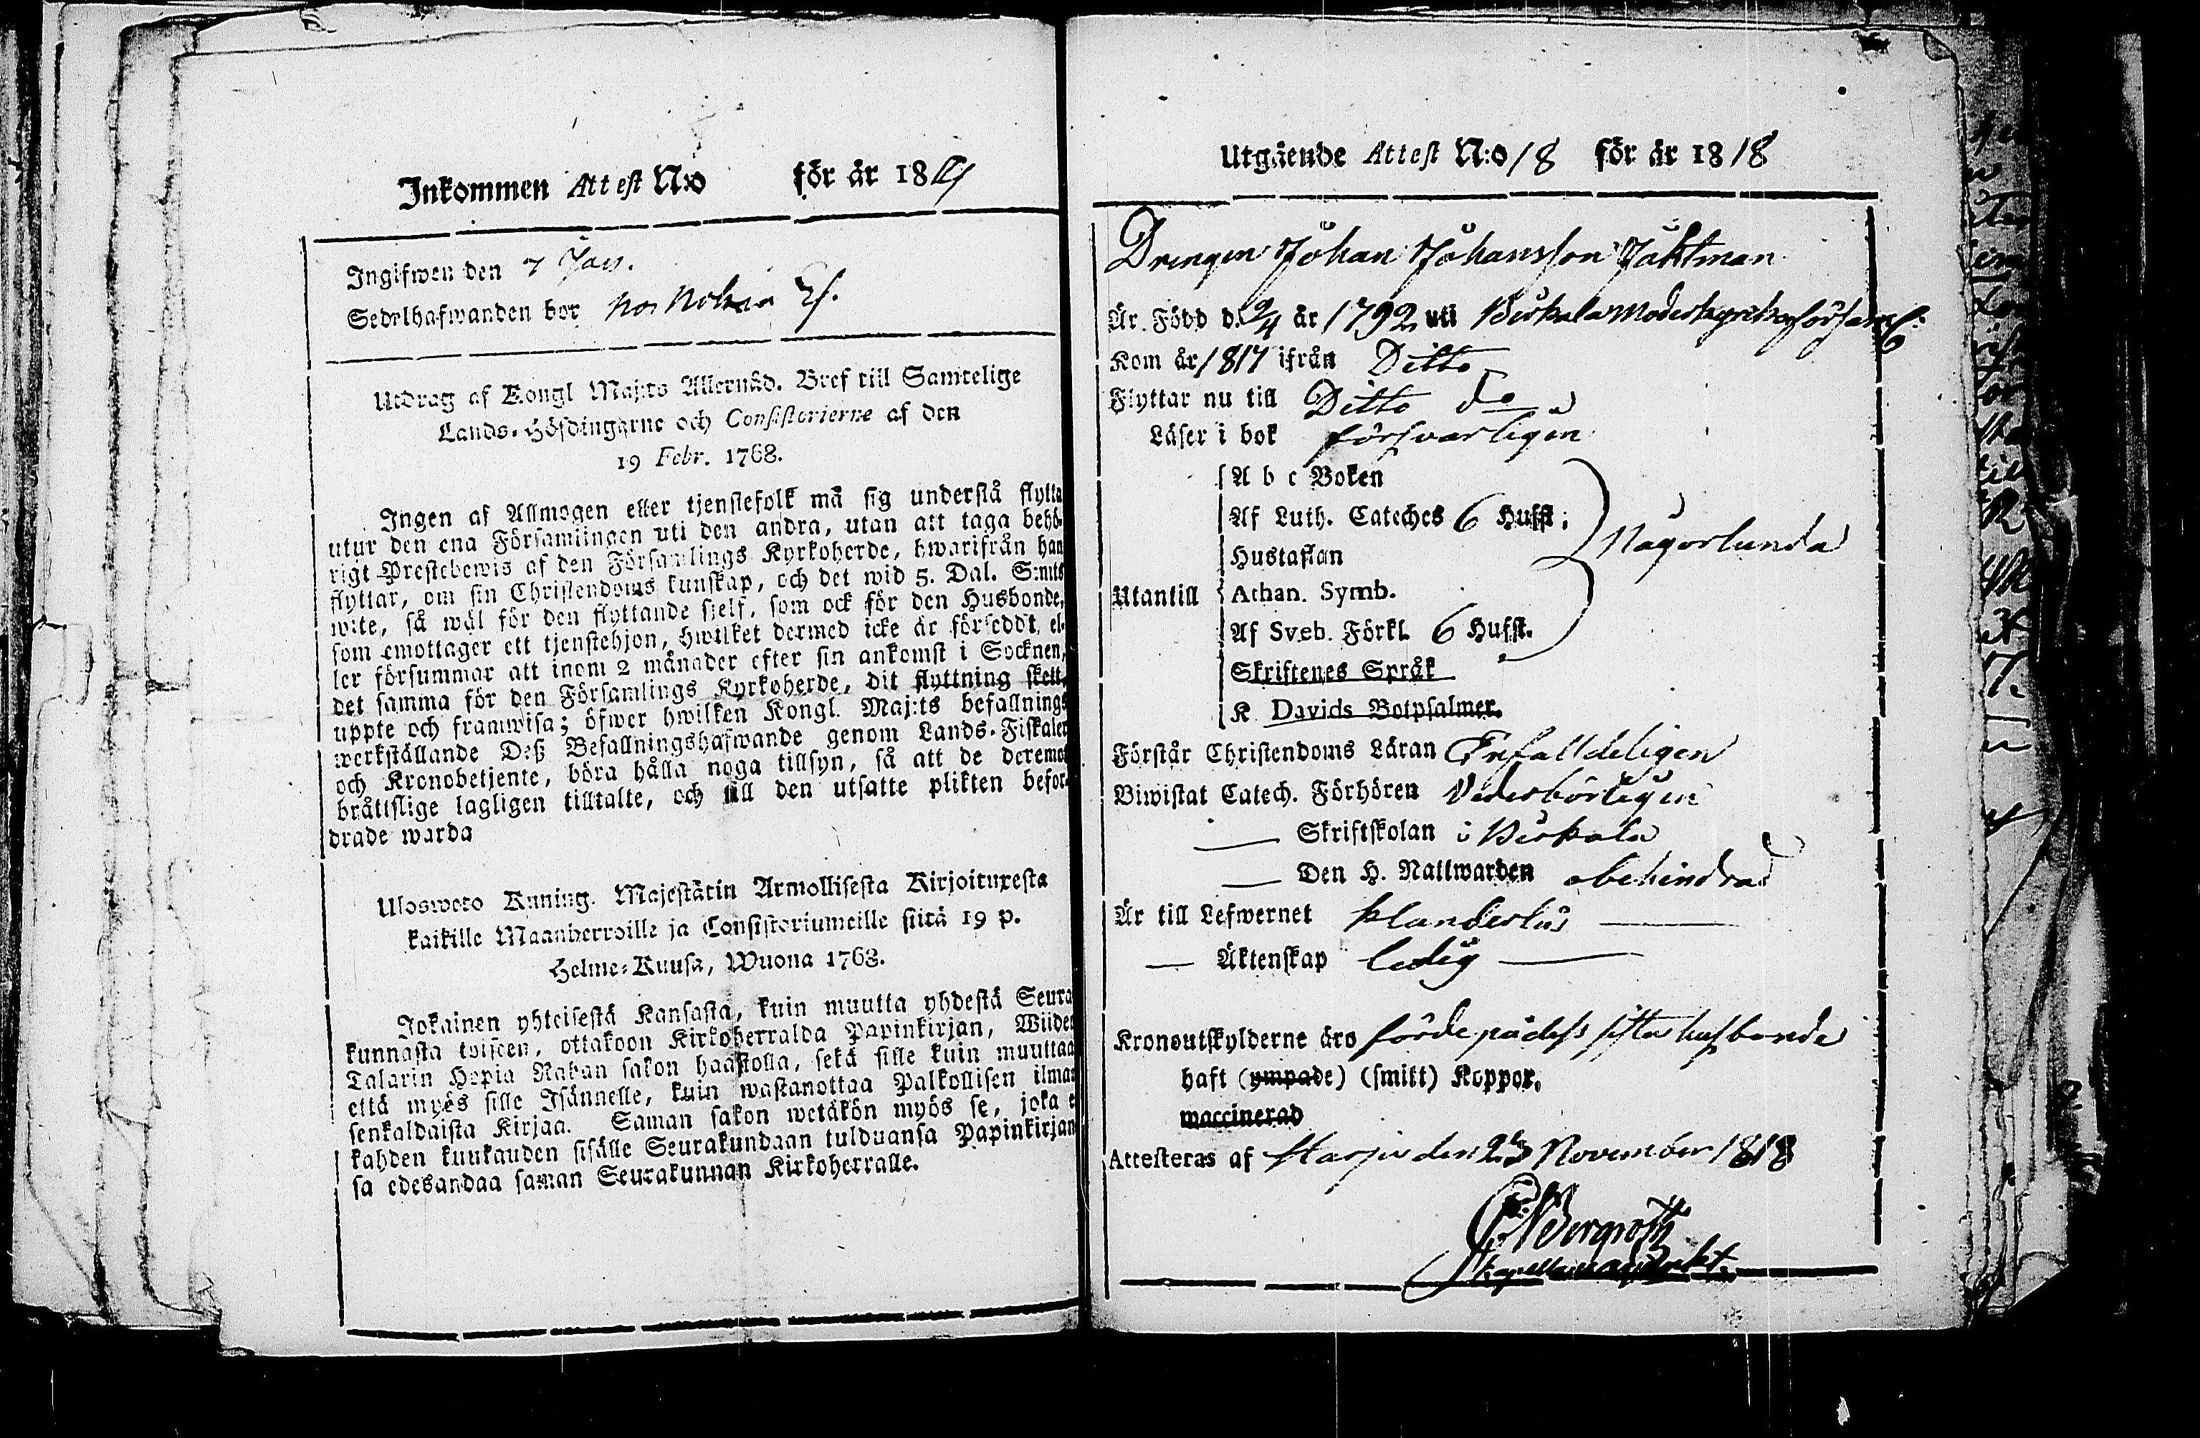 Inkommen Attest N:o för år 1819
Ingifwen den 7 Jan.
Sedelhafwanden bor hos Nohia
Utdrag af Kongl Maj:ts Allernåd. Bref till Samtelige
Lands-Höfdingarne och Consistorierne af den
19 Febr. 1768.
Ingen af Allmogen eller tjenstefolk må sig understå flytta
utur den ena Församlingen uti den andra, utan att taga behö-
rigt Prestebewis af den Församlings Kyrkoherde, hwarifrån han
flyttar, om sin Christendoms kunskap, och det wid 5. Dal. S:mts
wite, så wäl för den flyttande sjelf, som ock för den Husbonde,
som emottager ett tjenstehjon, hwilket dermed icke är förseddt, el-
ler försummar att inom 2 månader efter sin ankomst i Socknen,
det samma för den Församlings Kyrkoherde, dit flyttning skett,
uppte och framwisa; öfwer hwilken Kongl. Maj:ts befallnings
werkställande Deß Befallningshafwande genom Lands-Fiskaler
och Kronobetjente, böra hålla noga tillsyn, så att de deremot
bråttslige lagligen tilltalte, och till den utsatte plikten befor-
drade warda
Ulosweto Kuning. Majestätin Armollisesta Kirjoituxesta
kaikille Maanherroille ja Consistoriumeille siitä 19 p.
Helme-Kuusa, Wuona 1768.
Jokainen yhteisestä Kansasta, kuin muutta yhdestä Seura
kunnasta toiseen, ottakoon Kirkoherralda Papinkirjan, Wiiden
Talarin Hopia Rahan sakon haastolla, sekä sille kuin muuttaa
että myös sille Isännelle, kuin wastanottaa Palkollisen ilman
senkaldaista Kirjaa. Saman sakon wetäkön myös se, joka e
kahden kuukauden sisälle Seurakundaan tulduansa Papinkirjan
sa edesandaa saman Seurakunnan Kirkoherralle.
Utgående Attest N:o 18 för år 1818
Drengen Johan Johansson Jaktman
Är Född d. 2/4 år 1792 uti Birkala Moderkyrkoförsaml:
Kom år 1817 ifrån Ditto
Flyttar nu till Ditto do
Läser i bok försvarligen
A b c Boken
Af Luth. Cateches 6 Hufst;
Hustaflan
Någorlunda
Utantill Athan. Symb.
Af Sveb. Förkl. 6 Hufst.
Skriftenes Språk
K Davids Botpsalmer.
Förstår Christendoms Läran Enfalldeligen
Biwistat Catech. Förhören Vederbörligen
Skriftskolan i Birkala
Den H. Nattwarden obehindrad
Är till Lefwernet klanderlös
Äktenskap ledig
Kronoutskylderne äro förde på dess sista husbonde
haft (ympade) (smitt) Koppor.
waccinerad
Attesteras af Harju den 23 November 1818
Bergroth